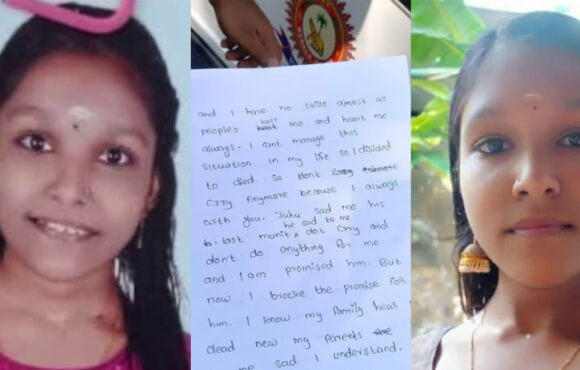 and I have no skills almost all
peoples hart me and heart me
always. I cant manage this
situation in my life so I disided
to died. so don't
Crzy Anymore becouse I always
with you. Juhu sad me his
last munit he sad to me dot Cry and
don't do anything for me
and I am promised him. But
now I brocke the promise for
him. I know my family hear
dead new my Parents
me sad I understand.